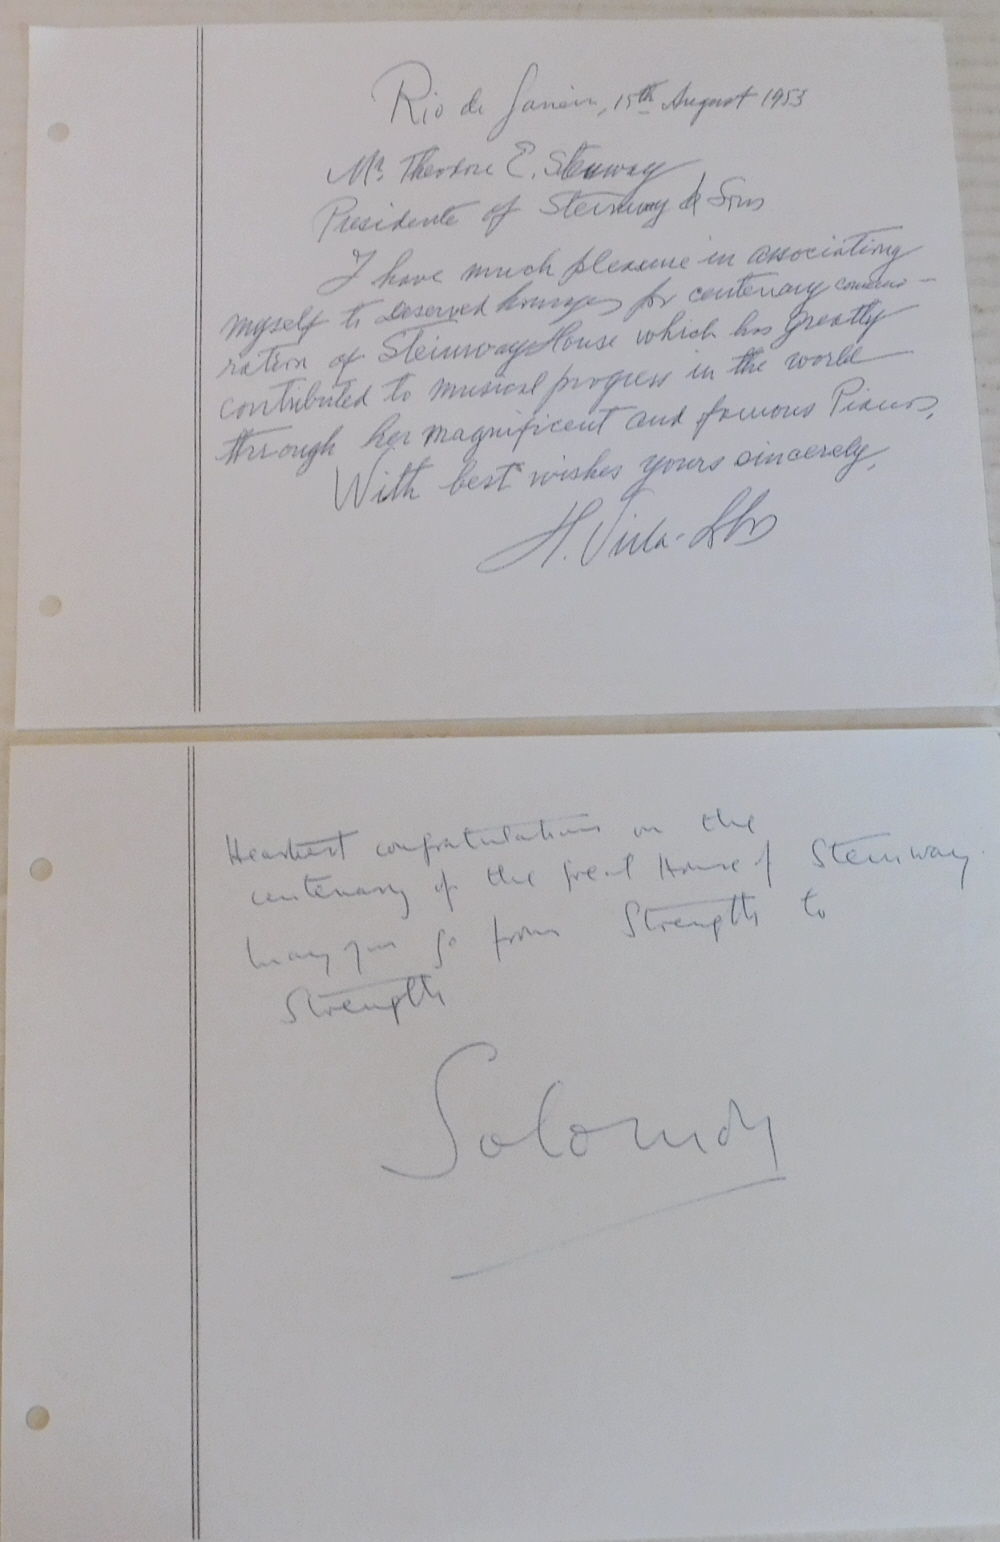 Rio de Janeiro, 15th August 1953
Mr. Theodore E. Steinway
Presidente of Steinway & Sons
I have much pleasure in associating
myself to deserved homages for centenary comemo-
ration of Steinway House which has greatly
contributed to musical progress in the world
through her magnificent and famous Pianos.
With best wishes yours sincerely,
H. Villa-Lobos
Heartiest congratulations on the
centenary of the great House of Steinway.
may you go from Strength to
Strength
Solomon